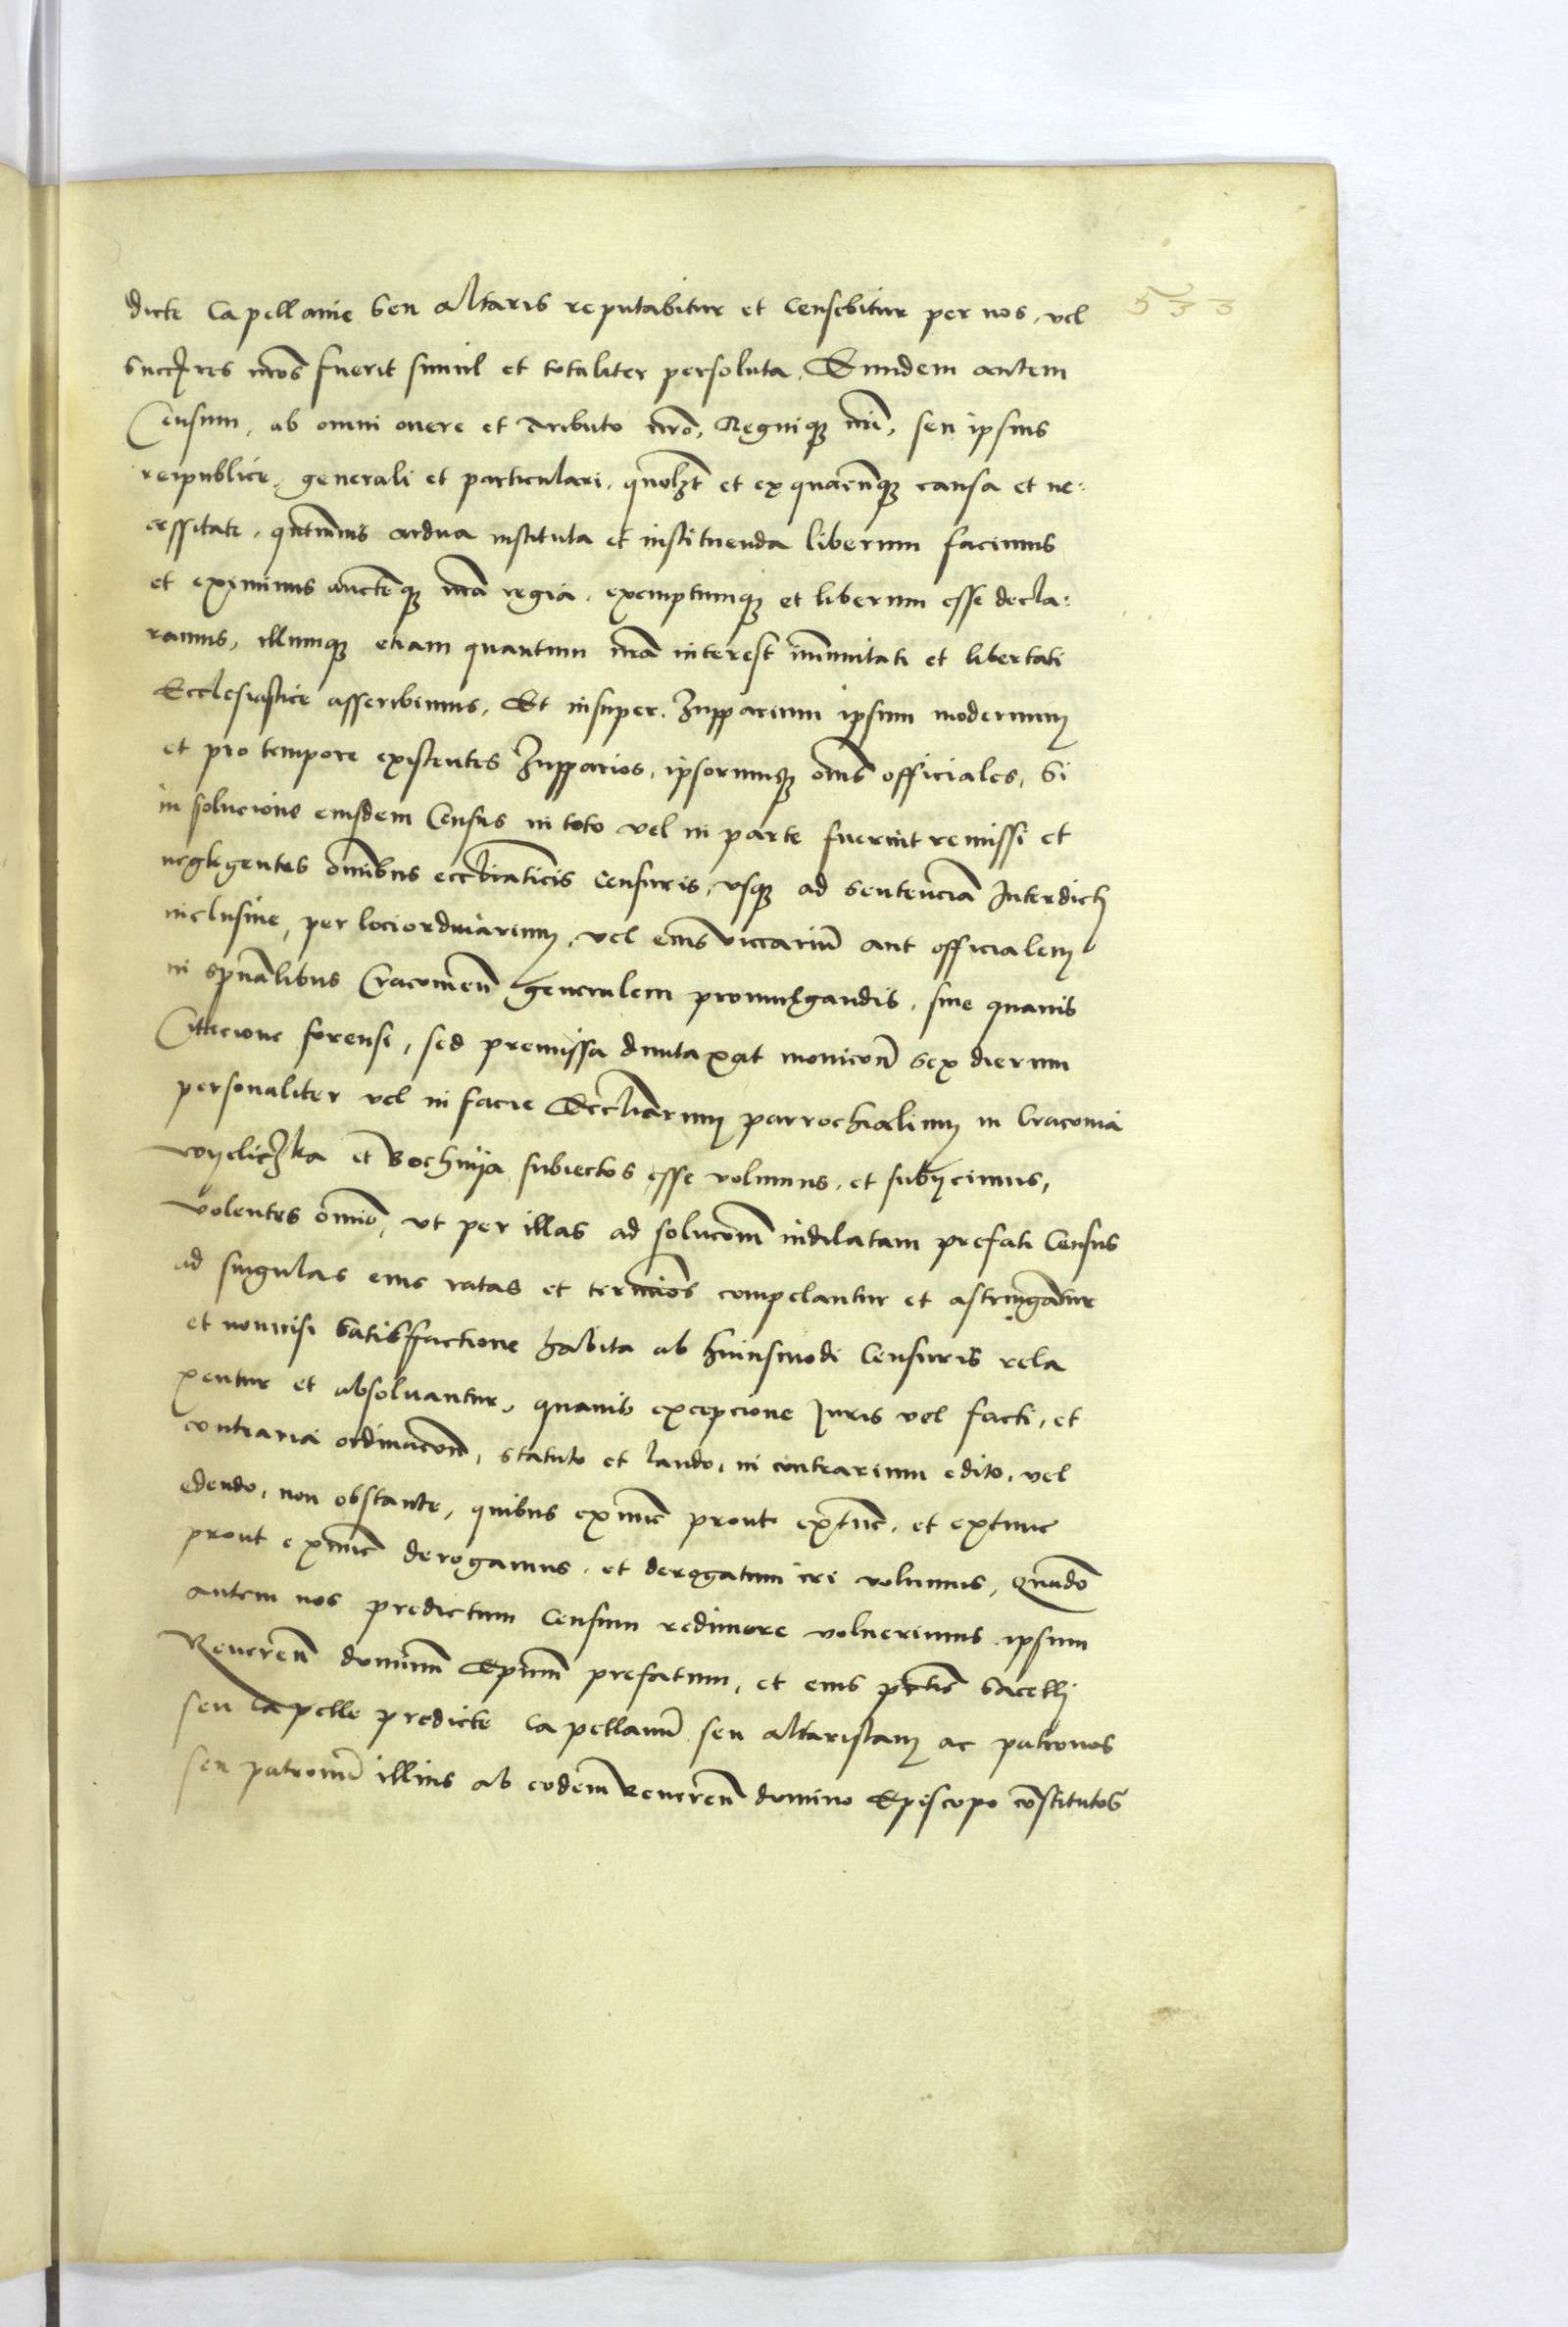 dicte Capellanie seu altaris reputabitur et censebitur per nos, vel 533
succ̃res nr̃os fuerit simul et totaliter persoluta. Eundem autem
Censum, ab omni onere et Tributo nrõ, Regniq̃ nr̃i, seu ipsius
reipublice, generali et particulari, quolꝫt et ex quacũq̃ causa et ne:
cessitate, q̃ntũuis ardua instituta et instituenda liberum facimus
et eximimus auctẽq̃ nr̃a regia, exemptumq̃ et liberum esse decla:
ramus, illumq̃ etiam quantum nr̃a interest im̃unitati et libertati
Ecclesiastice asscribimus, Et insuper. Zupparium ipsum modernum
et pro tempore existentes Zupparios, ipsorumq̃ om̃s officiales, si
in solucione eiusdem Census in toto vel in parte fuerint remissi et
neglegentes om̃ibus eccl̃iaticis censuris, vsq̃ ad sentenciã Interdicti
inclusiue, per loci ordinarium, vel eius viccariũ aut officialem
in sp̃ualibus Cracouieñ generalem promulgandis, sine quauis
Cittacione forensi, sed premissa dumtaxat monicoñe sex dierum
personaliter vel in facie Eccl̃iarum parrochialium in Cracouia
Wyeliczka et Bochnija subiectos esse volumus, et subijcimus,
volentes om̃io, vt per illas ad solucoñm indilatam prefati Census
ad singulas eius ratas et termiõs compelantur et astringãtur
et nonnisi satisffactione habita ab huiusmodi Censuris rela
xentur et absoluantur, quauis excepcione Juris vel facti, et
contraria ordinacoñe, statuto et laudo, in contrarium edito, vel
edendo, non obstante, quibus exnũc prout extũc, et extunc
prout exnũc derogamus, et derogatum iri volumus, Quãdo
autem nos predictum Censum redimere voluerimus ipsum
Reuereñ dominũm Ep̃um prefatum, et eius p̃rtis sacelli
seu Capelle predicte Capellanũ seu altaristam ac patronos
seu patronũ illius ab eodem Reuereñ domino Episcopo cõstitutos